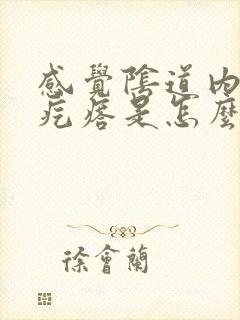 感覺陰道內
疙瘩是怎麼
徐會蘭